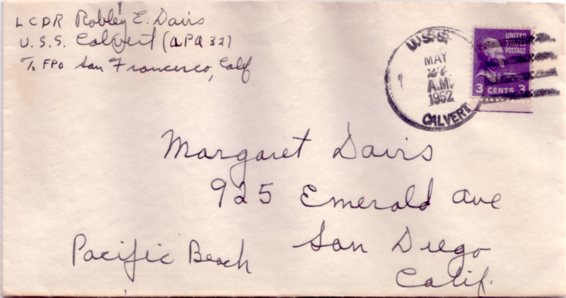 LCDR Robley E. Davis
U.S.S. Calvert (APA 32)
℅ FPO San Francisco, Calif
U.S.S.
MAY
27
A.M.
1952
CALVERT
UNITED
STATES
POSTAGE
3 CENTS 3
Margaret Davis
925 Emerald Ave
Pacific Beach San Diego
Calif.